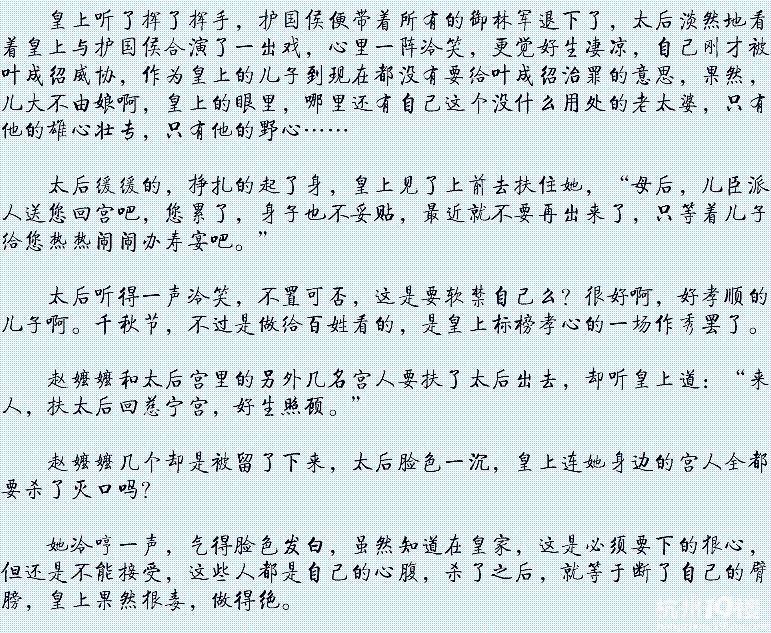 皇上听了挥了挥手，护国侯便带着所有的御林军退下了，太后淡然地看
着皇上与护国侯合演了一出戏，心里一阵冷笑，更觉好生凄凉，自己刚才被
叶成绍威协，作为皇上的儿子到现在都没有要给叶成绍治罪的意思，果然，
儿大不由娘啊，皇上的眼里，哪里还有自己这个没什么用处的老太婆，只有
他的雄心壮志，只有他的野心……
太后缓缓的，挣扎的起了身，皇上见了上前去扶住她，“母后，儿臣派
人送您回宫吧，您累了，身子也不妥贴，最近就不要再出来了，只等着儿子
给您热热闹闹办寿宴吧。”
太后听得一声冷笑，不置可否，这是要软禁自己么？很好啊，好孝顺的
儿子啊。千秋节，不过是做给百姓看的，是皇上标榜孝心的一场作秀罢了。
赵嬷嬷和太后宫里的另外几名宫人要扶了太后出去，却听皇上道：“来
人，扶太后回慈宁宫，好生照顾。”
赵嬷嬷几个却是被留了下来，太后脸色一沉，皇上连她身边的宫人全都
要杀了灭口吗？
她冷哼一声，气得脸色发白，虽然知道在皇家，这是必须要下的狠心，
但还是不能接受，这些人都是自己的心腹，杀了之后，就等于断了自己的臂
膀，皇上果然狠毒，做得绝。
杭州19楼